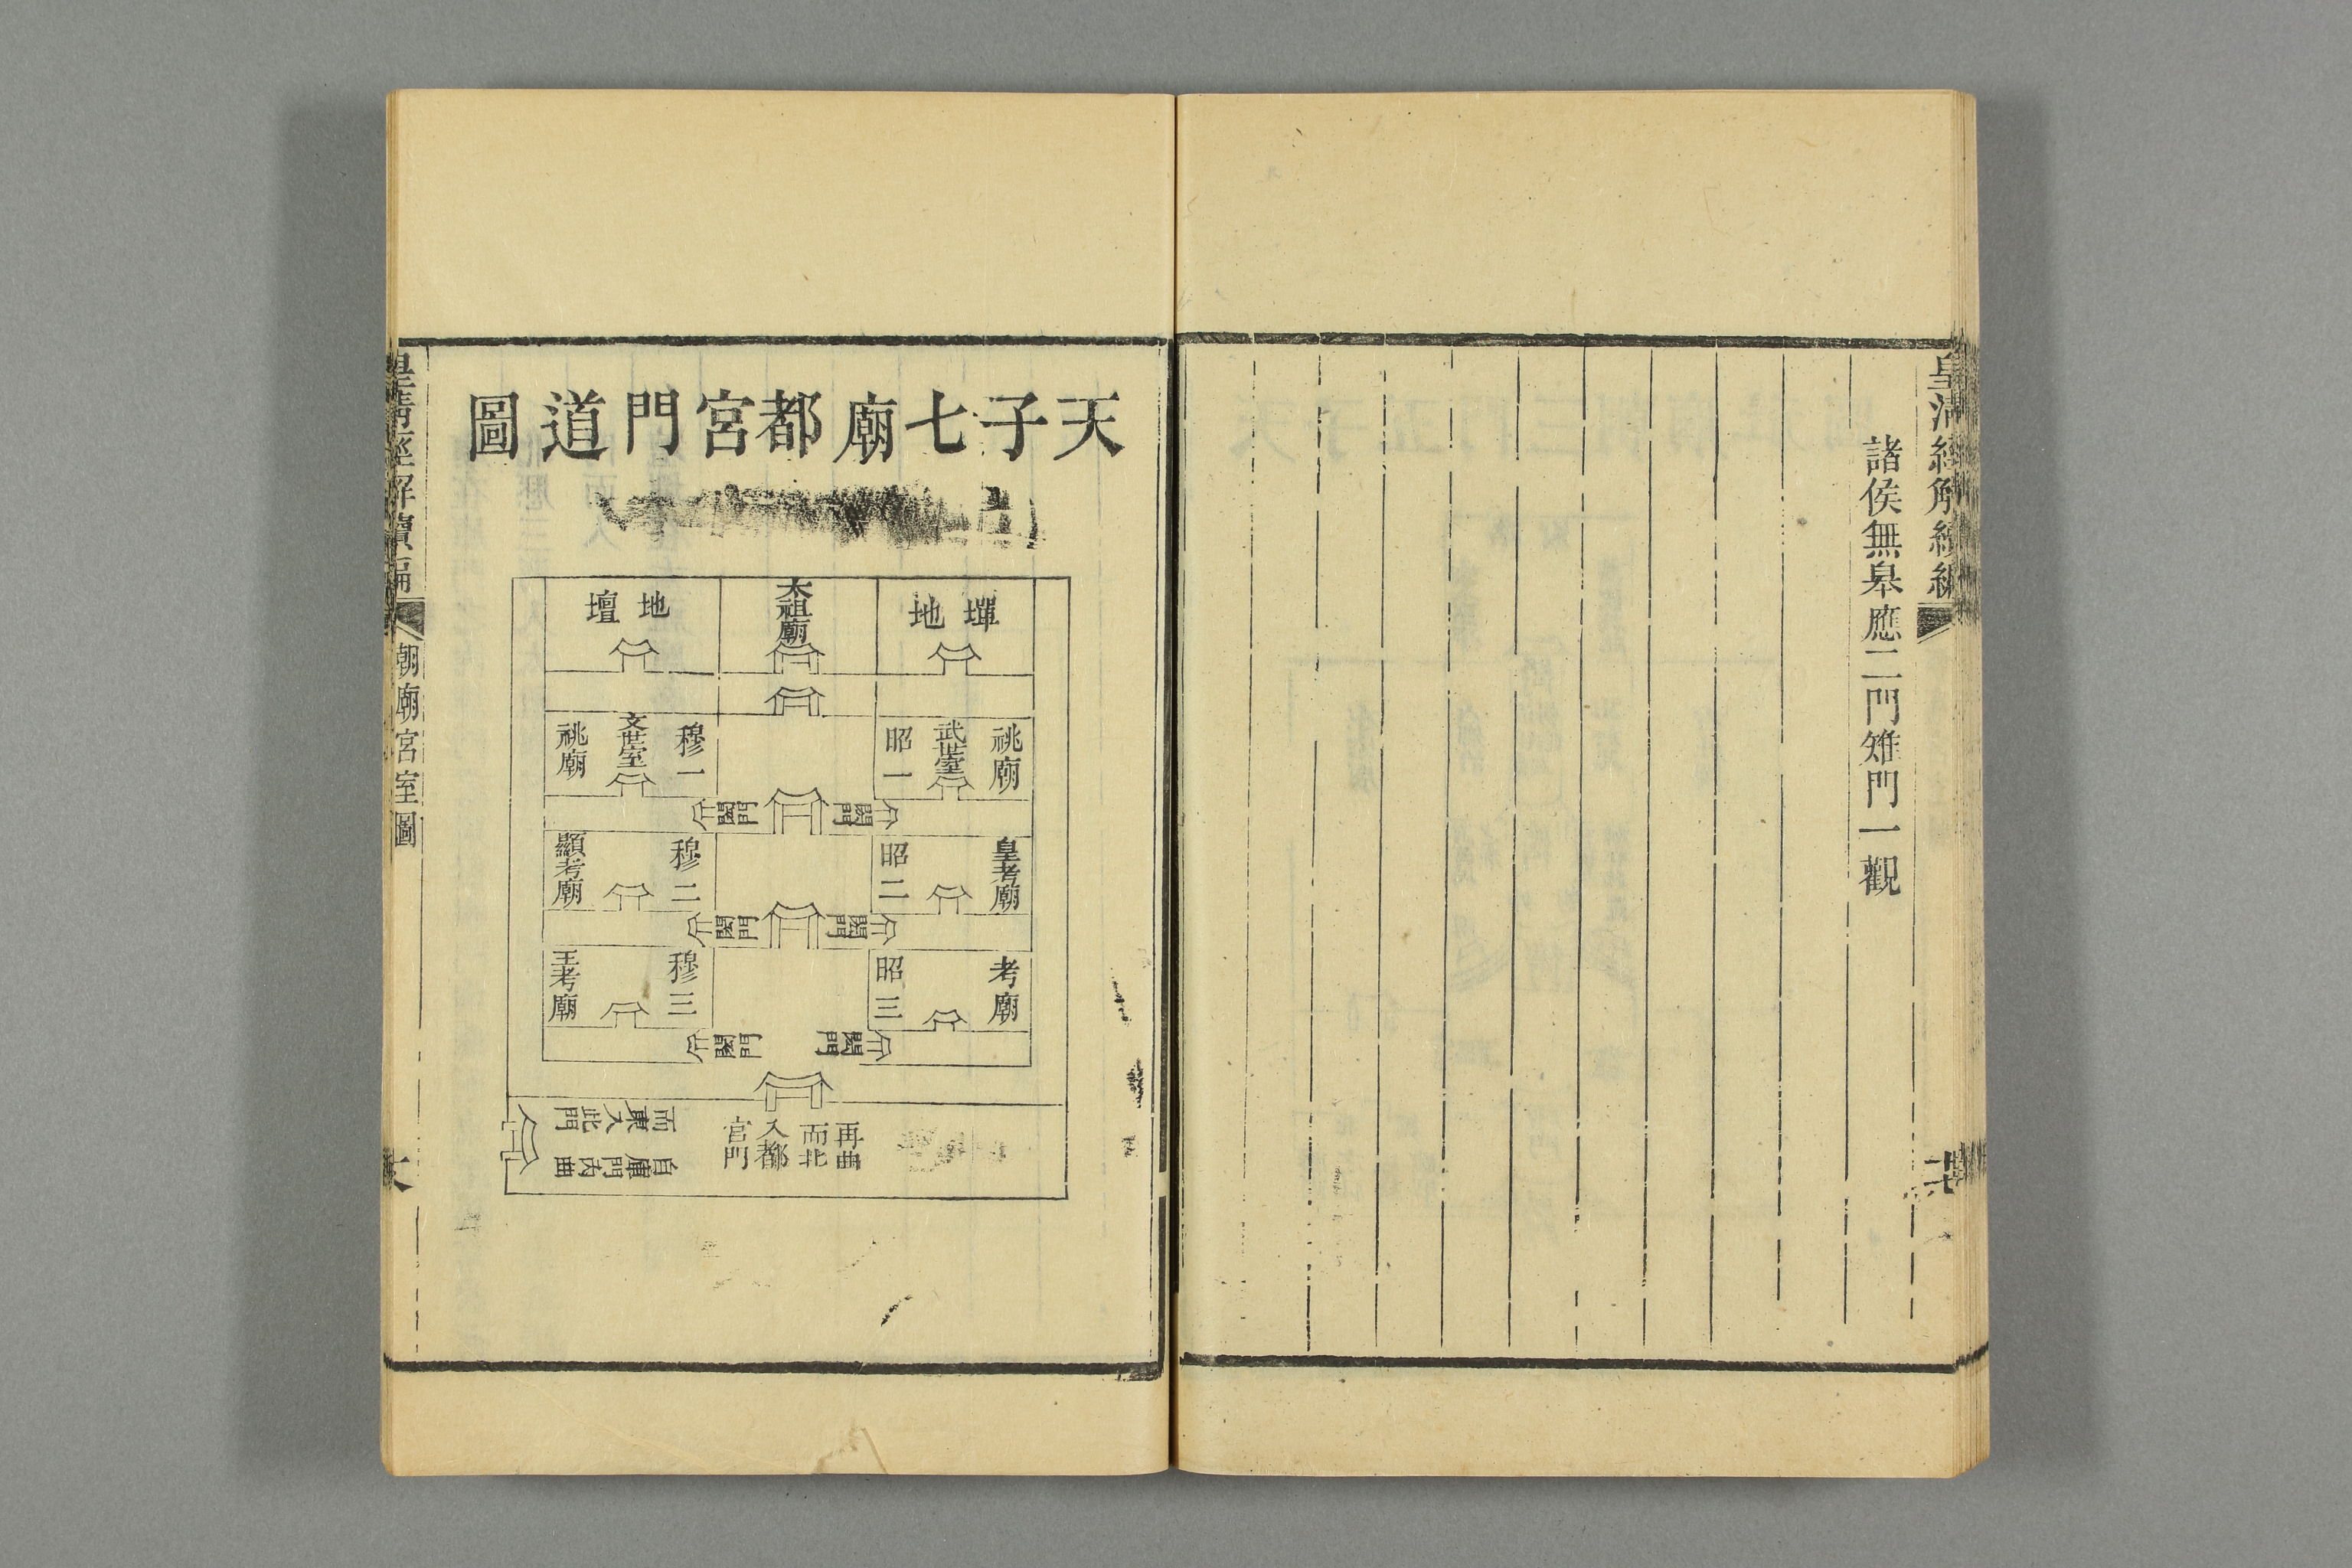 皇清經解續編
諸侯無皋應二門雉門一觀
天子七廟都宮門道圖
墠地
太祖廟
地壇
祧廟
武世室
昭一
穆一
文世室
祧廟
闈門
闈門
皇考廟
昭二
穆二
顯考廟
闈門
闈門
考廟
昭三
穆三
王考廟
闈門
闈門
再曲
而北
入都
宮門
自庫門內曲
而東入此門
皇清經解續編
朝廟宮室圖